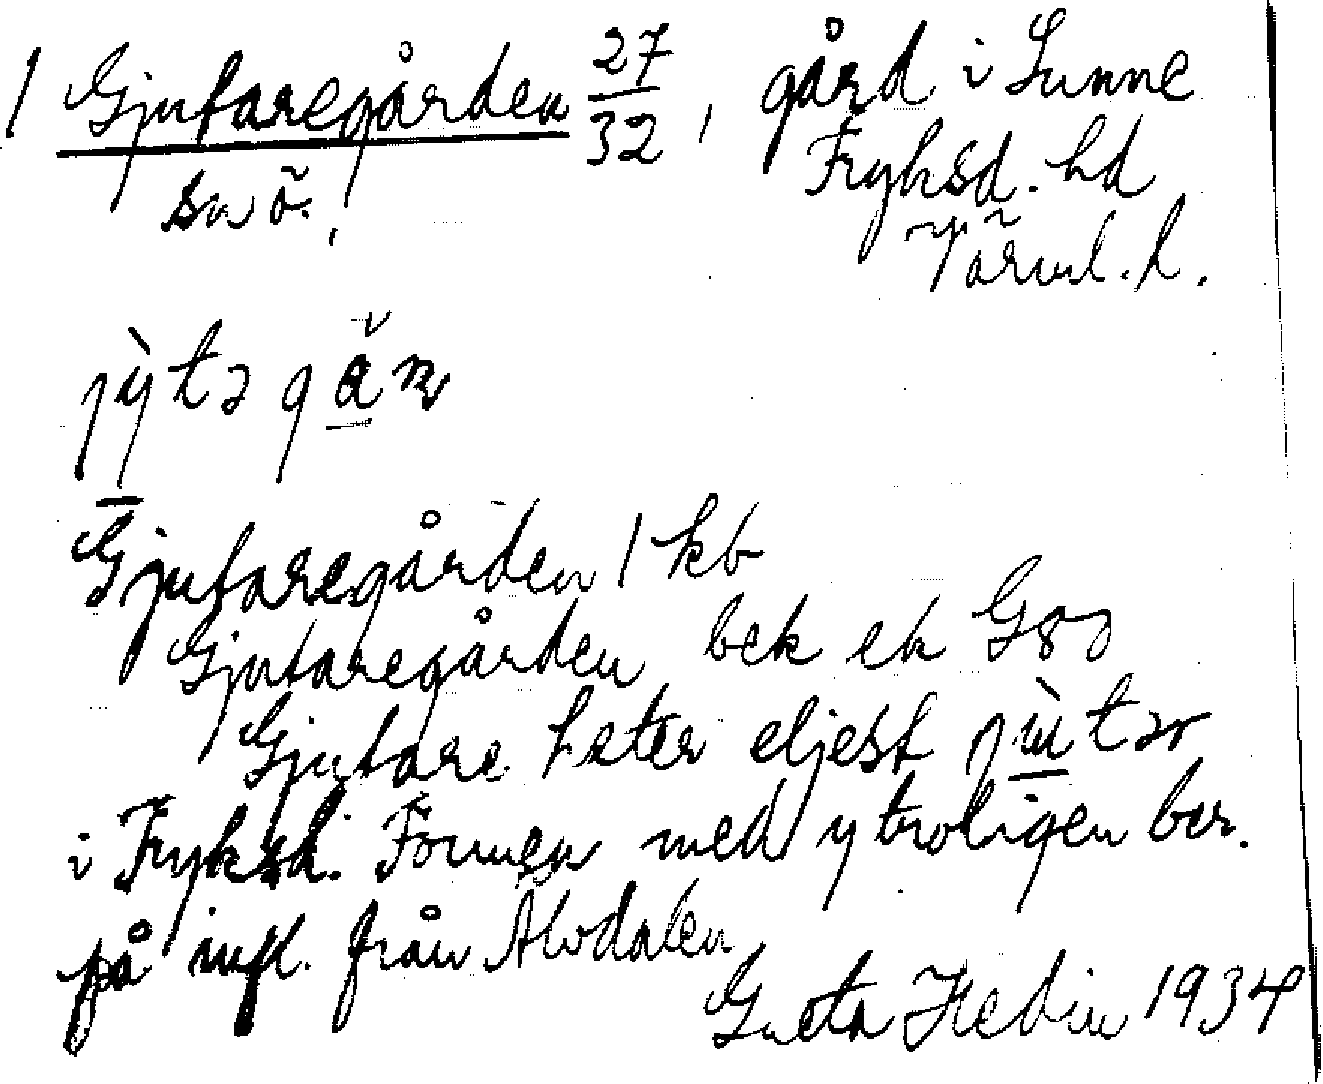 1 Gjutaregården 27/32, gård i Sunne
sv ö. Fryksd. hd
Värml. l.
jỳtə gǎ
Gjutaregården 1 kb
Gjutaregården bek ek G80
Gjutare heter eljest jùtər
i Fryksd. Formen med y troligen ber.
på infl. från Älvdalen
Greta Hedin 1934